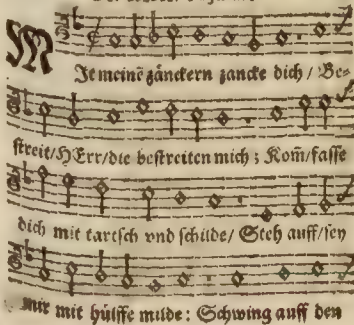 MJt meinē zänckern zancke dich / Be-
streit/HErr/die bestreiten mich; Kom̄/fasse
dich mit tartsch vnd schilde/ Steh auff/sey
mir mit hülffe milde: Schwing auff den